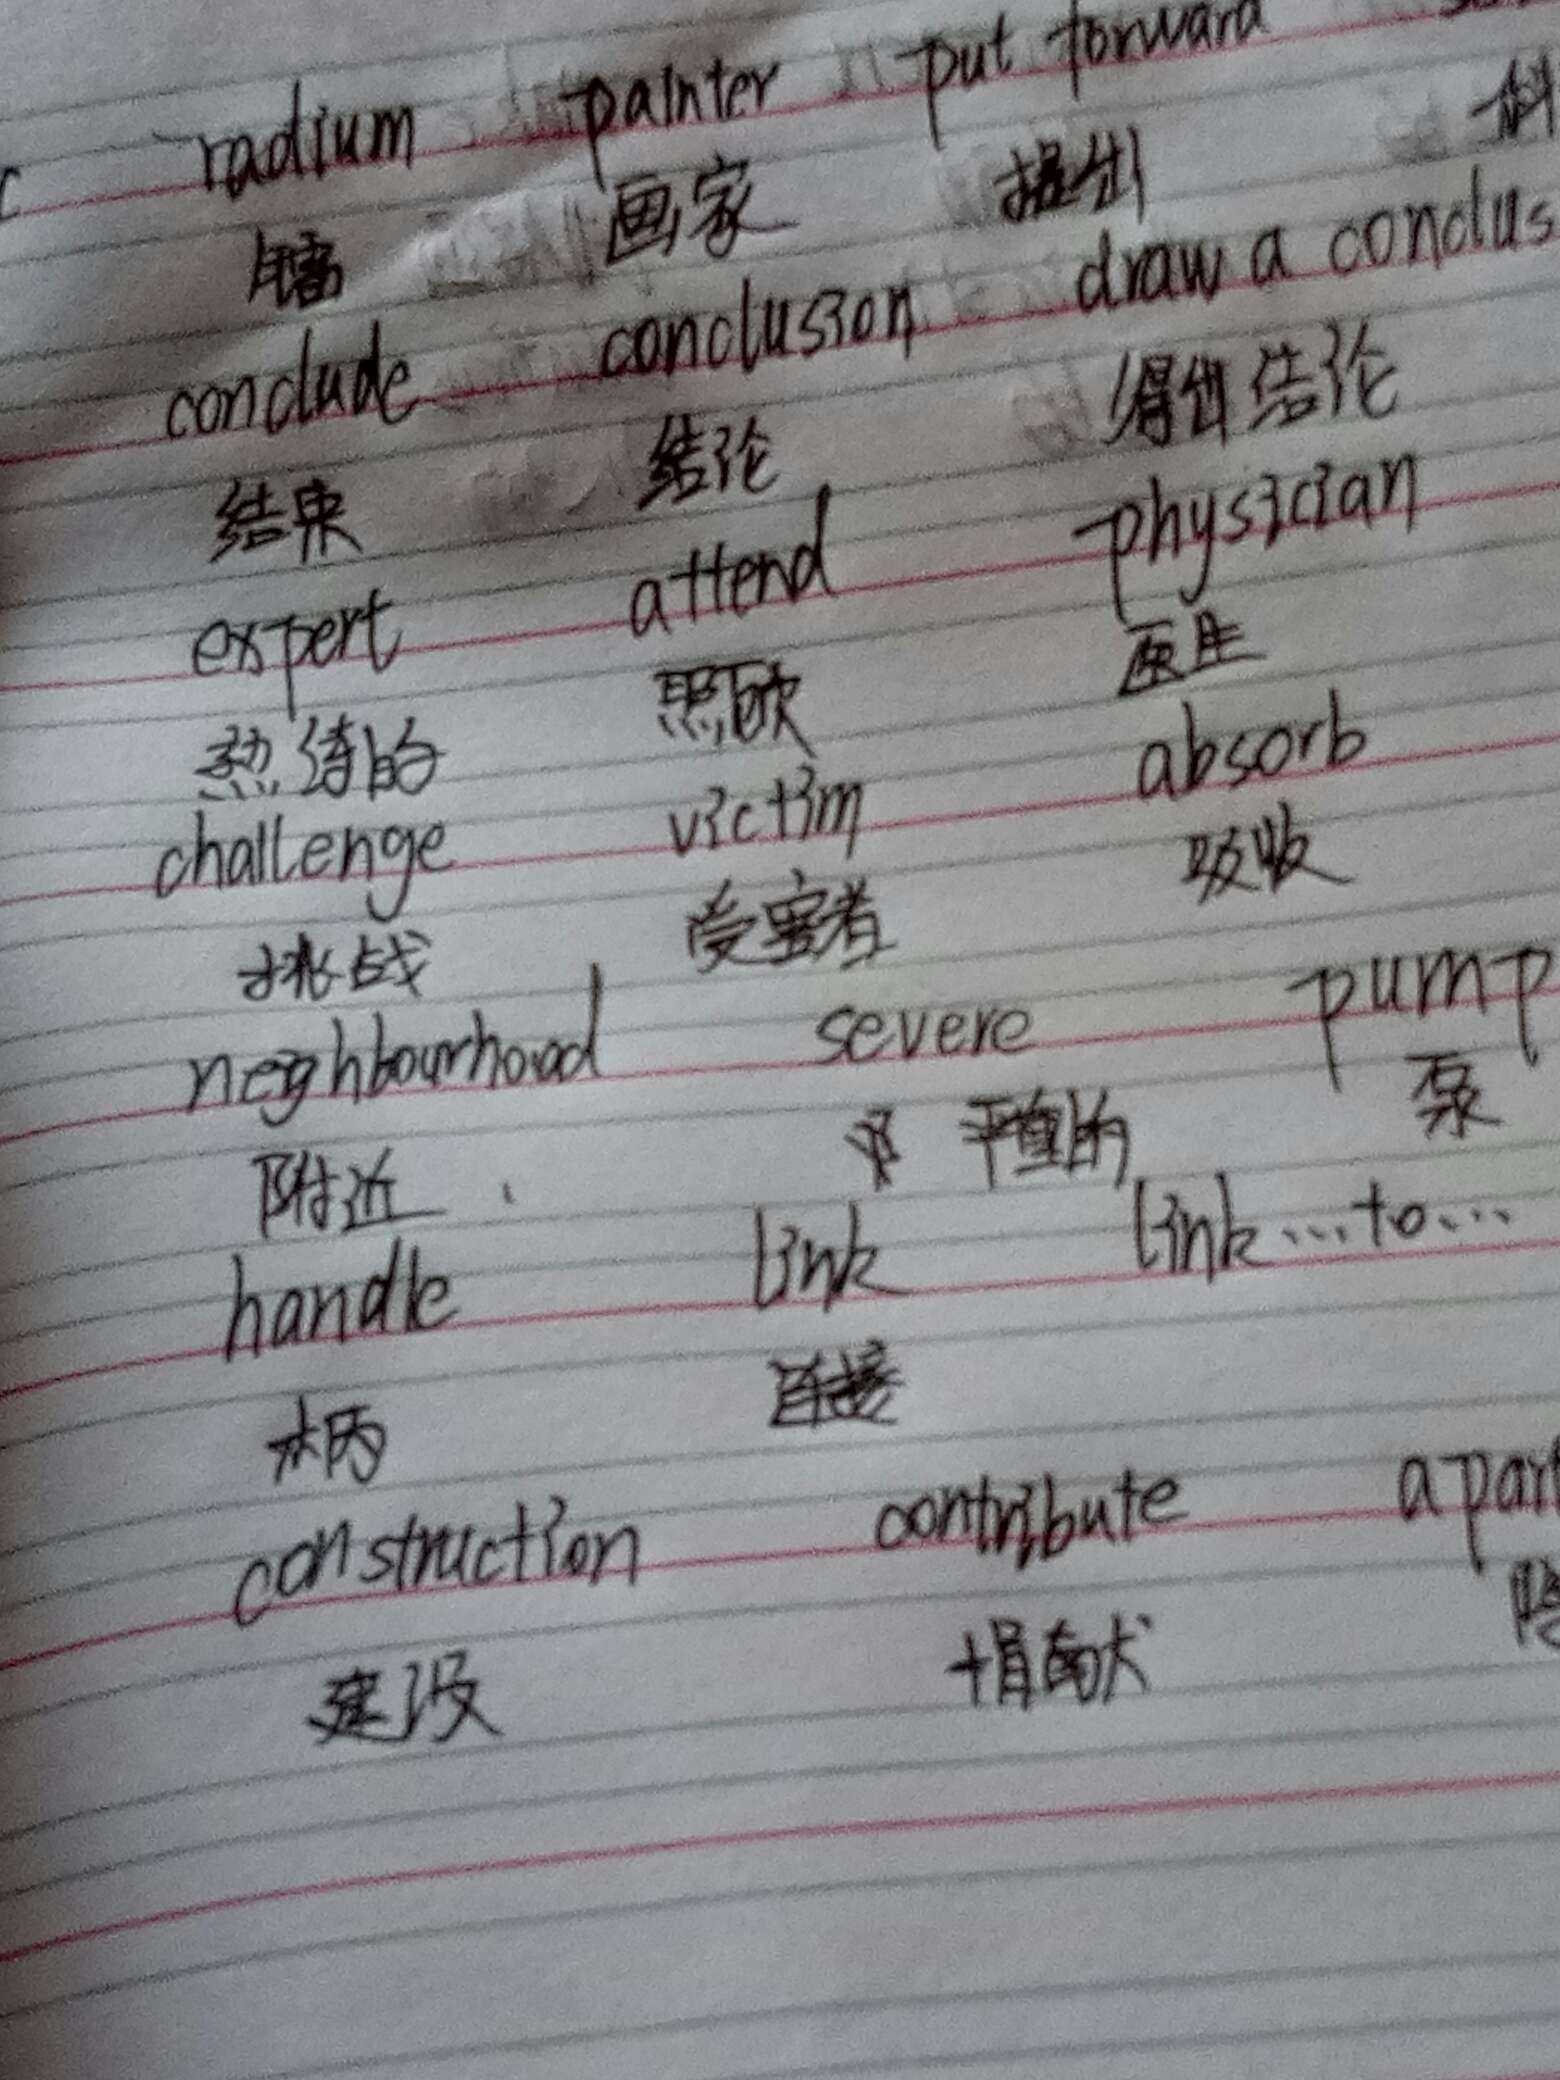 c radium painter put forward
画家 提出
conclude conclusion draw a conclus
结束 结论 得出结论
expert attend physician
热待的 照顾 医生
challenge victim absorb
挑战 受害者 吸收
neighbourhood severe pump
附近 严重的 泵
handle link link...to...
柄 连接
construction contribute apart
建设 捐献